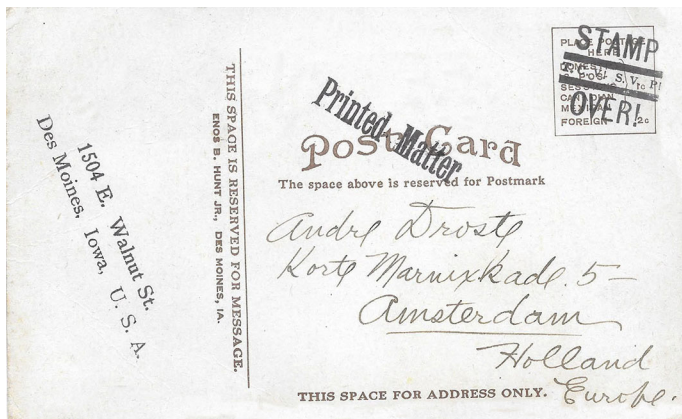 1504 E. Walnut St.
Des Moines, Iowa, U. S. A.
THIS SPACE IS RESERVED FOR MESSAGE.
ENOS B. HUNT JR., DES MOINES, IA.
Printed Matter
Post Card
The space above is reserved for Postmark
STAMP
OVER!
PLACE POSTAGE
HERE
MEXICAN
FOREIGN 2c
Andre Droste
Korte Marnixkade 5-
Amsterdam
Holland
Europe.
THIS SPACE FOR ADDRESS ONLY.